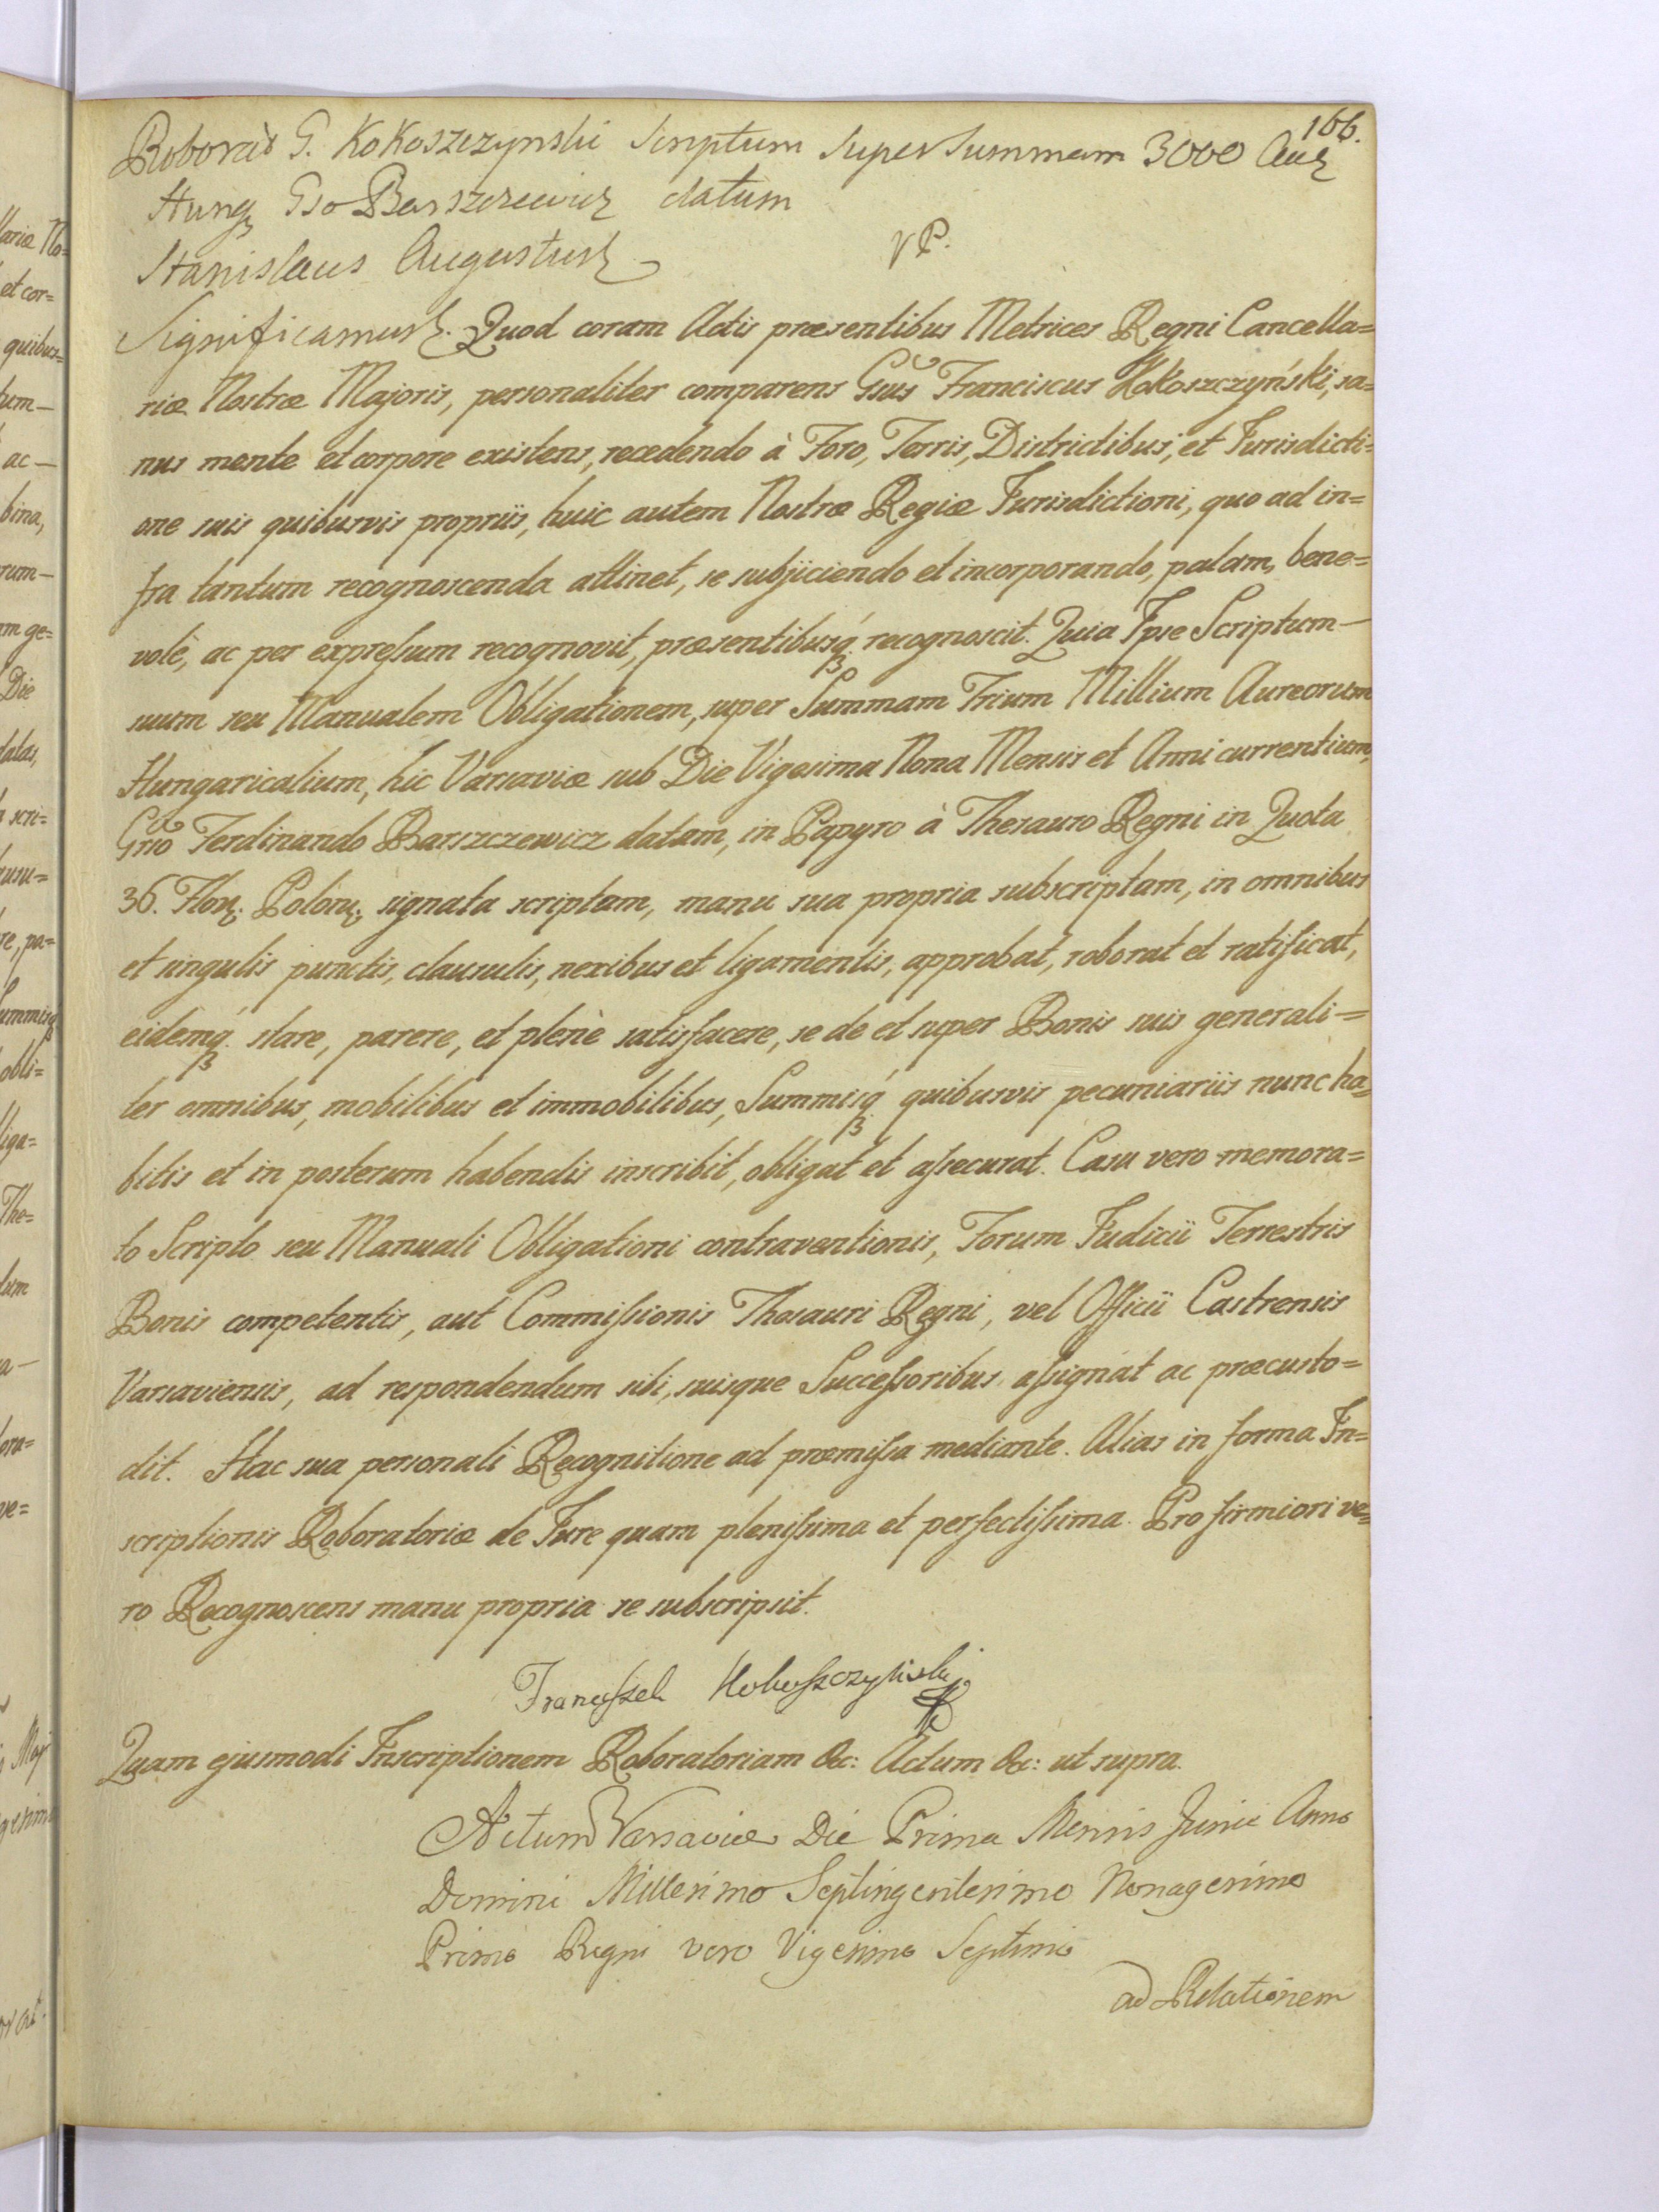 166.
Roborat G. Kokoszczynski Scriptum super Summam 3000 Aur
Hung Gso Barszczewicz datum
Stanislaus Augustus VP.
Significamus. Quod coram Actis præsentibus Metrices Regni Cancella=
riæ Nostræ Majoris, personaliter comparens Gsus Franciscus Kokoszczyński, sa=
nus mente et corpore existens, recedendo à Foro, Terris, Districtibus, et Jurisdicti=
one suis quibusvis propriis, huic autem Nostræ Regiæ Jurisdictioni, quo ad in=
fra tantum recognoscenda attinet, se subjiciendo et incorporando, palam, bene=
volè, ac per expreſsum recognovit, præsentibusq́ recognoscit. Quia Ipse Scriptum—
suum seu Manualem Obligationem, super Summam Trium Millium Aureorum
Hungaricalium, hic Varsaviæ sub Die Vigesima Nona Mensis et Anni currentium,
Gso Ferdinando Barszczewicz datam, in Papyro à Thesauro Regni in Quota
36. Flor. Polon. signata scriptam, manu sua propria subscriptam, in omnibus
et singulis punctis, clausulis, nexibus et ligamentis, approbat, roborat et ratificat,
eidemq́ stare, parere, et plenè satisfacere, se de et super Bonis suis generali=
ter omnibus, mobilibus et immobilibus, Summisq́ quibusvis pecuniariis nunc ha=
bitis et in posterum habendis inscribit, obligat et aſsecurat. Casu vero memora=
to Scripto seu Manuali Obligationi contraventionis, Forum Judicii Terrestris
Bonis competentis, aut Commiſsionis Thesauri Regni, vel Officii Castrensis
Varsaviensis, ad respondendum sibi, suisque Succeſsoribus aſsignat ac præcusto=
dit. Hac sua personali Recognitione ad præmiſsa mediante. Alias in forma In=
scriptionis Roboratoriæ de Jure quam pleniſsima et perfectiſsima. Pro firmiori ve=
ro Recognoscens manu propria se subscripsit.
Franciſzek Kokoſzczyński
Quam ejusmodi Inscriptionem Roboratoriam &c: Actum &c: ut supra.
Actum Varsaviæ Die Prima Mensis Junii Anno
Domini Millesimo Septingentesimo Nonagesimo
Primo Regni vero Vigesimo Septimo
ad Relationem